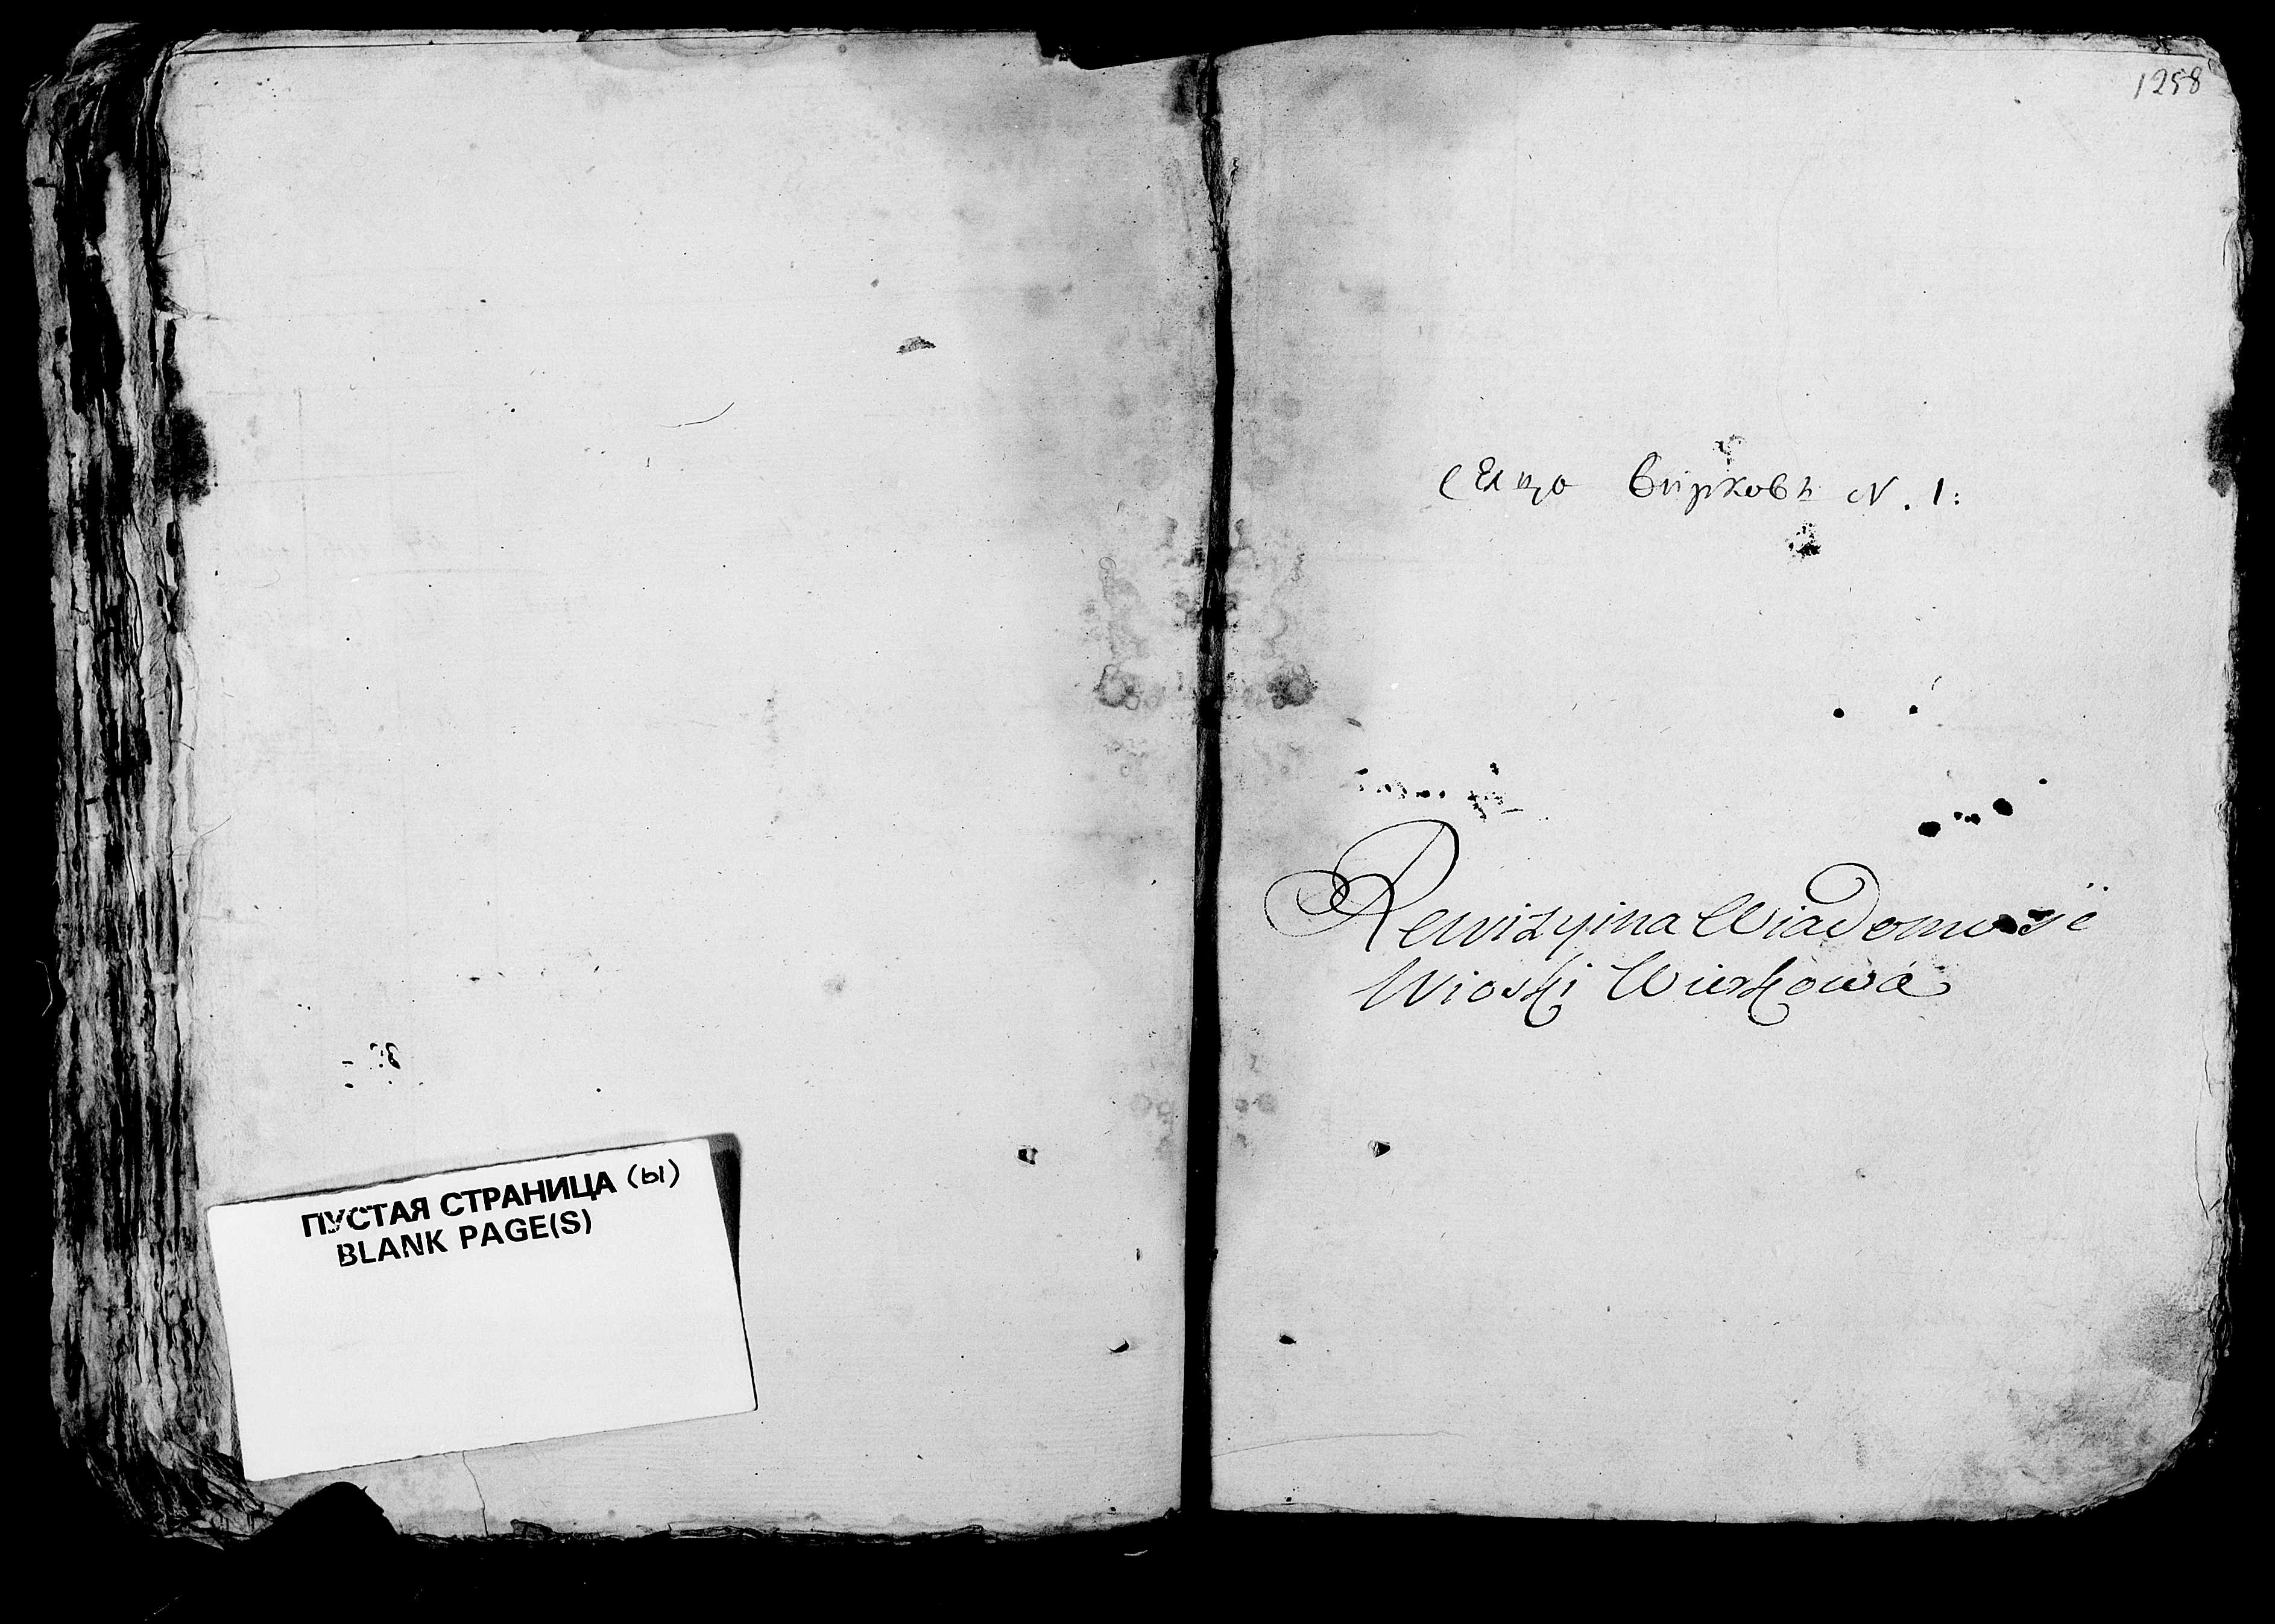 ПУСТАЯ СТРАНИЦА (ы)
BLANK PAGE(S)
1258
Селцо Вирковъ N. 1:
Rewizyina Wiadomosci
Wioski Wirkowa